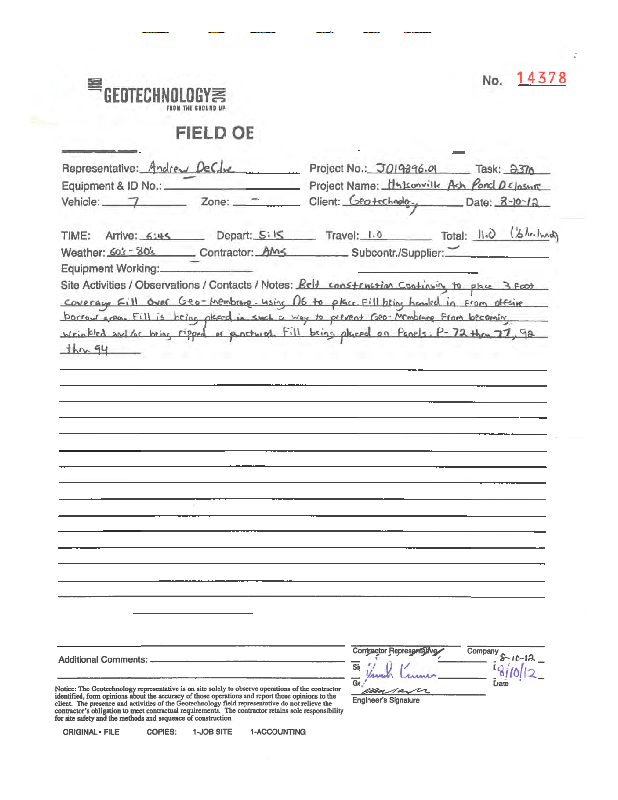 No. 14378
GEOTECHNOLOGY
FROM THE GROUND UP
FIELD OB
Representative: Andrew DeClue Project No.: J019396.01 Task: 237A
Equipment & ID No.: Project Name: Hutsonville Ash Pond D Closure
Vehicle: 7 Zone: - Client: Geotechnology Date: 8-10-12
TIME: Arrive: 6:45 Depart: 5:15 Travel: 1.0 Total: 11.0 (½ hr. lunch)
Weather: 60's-80's Contractor: AMS Subcontr./Supplier:
Equipment Working:
Site Activities / Observations / Contacts / Notes: Belt construction Continuing to place 3 Foot
coverage fill over Geo-Membrane using D6 to place. Fill being handed in From offsite
borrow area. Fill is being placed in such a way to prevent Geo-Membrane From becoming
wrinkled and/or being ripped or punctured. Fill being placed on Panels: P-72 thru 77, 92
thru 94
Contractor Representative Company
Additional Comments: 8-10-12
8/10/12
Date
Engineer's Signature
Notice: The Geotechnology representative is on site solely to observe operations of the contractor
identified, form opinions about the accuracy of those operations and report those opinions to the
client. The presence and activities of the Geotechnology field representative do not relieve the
contractor's obligation to meet contractual requirements. The contractor retains sole responsibility
for site safety and the methods and sequence of construction
ORIGINAL - FILE COPIES: 1-JOB SITE 1-ACCOUNTING